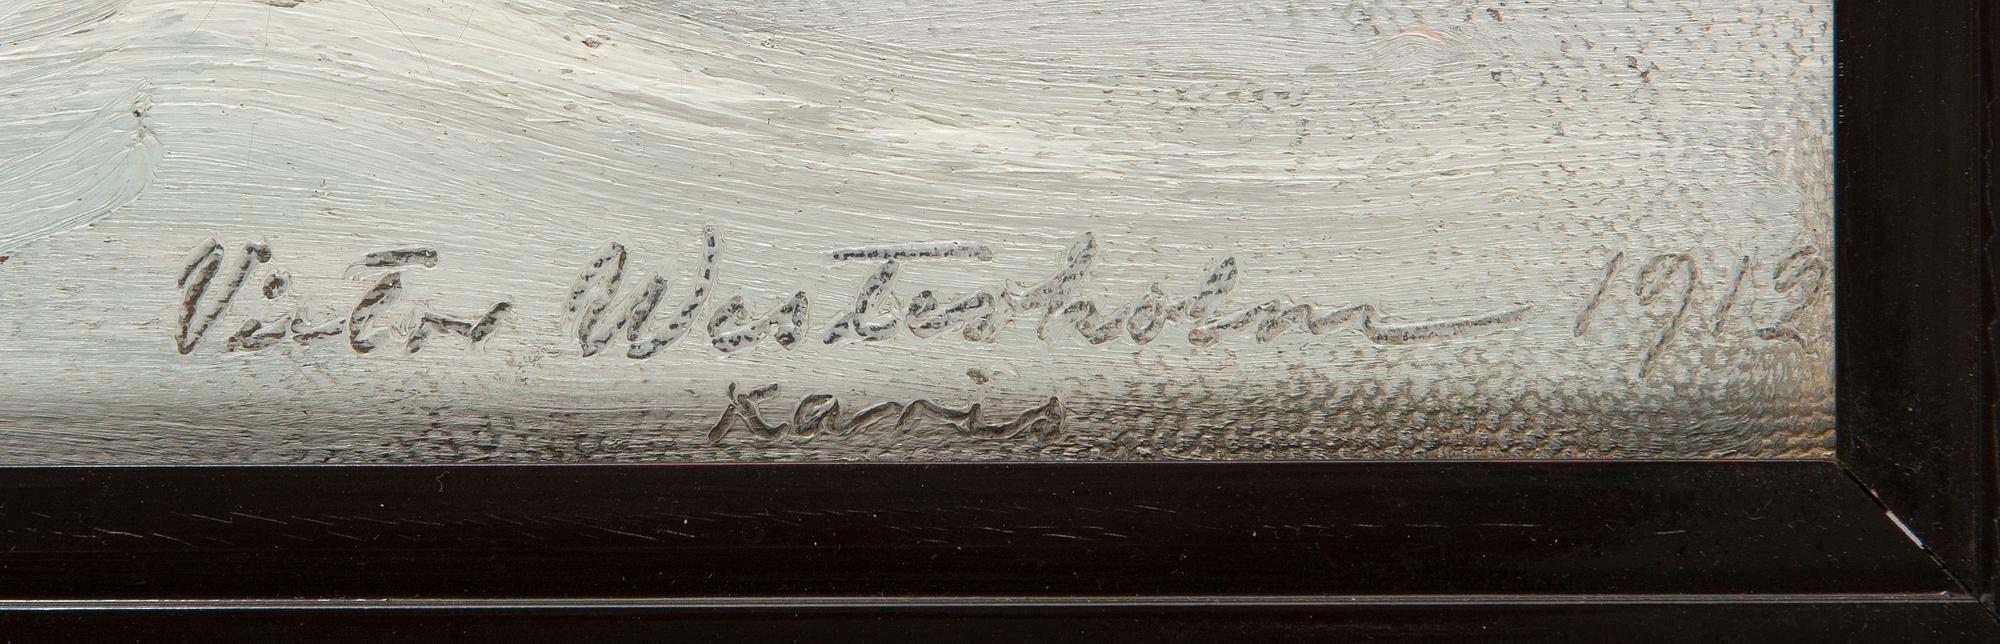 Victor Westerholm 1913
Karis